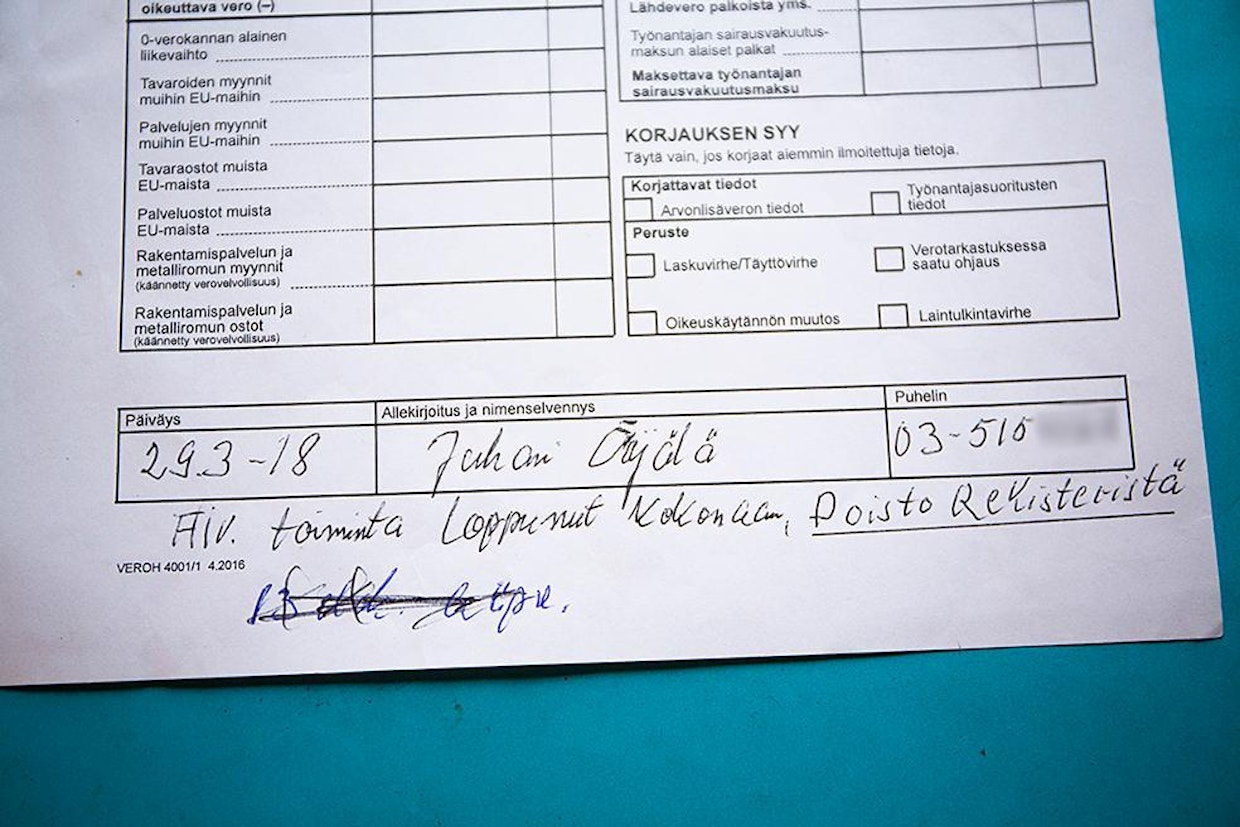 oikeuttava vero (–)
0-verokannan alainen
liikevaihto
Tavaroiden myynnit
muihin EU-maihin
Palvelujen myynnit
muihin EU-maihin
Tavaraostot muista
EU-maista
Palveluostot muista
EU-maista
Rakentamispalvelun ja
metalliromun myynnit
(käännetty verovelvollisuus)
Rakentamispalvelun ja
metalliromun ostot
(käännetty verovelvollisuus)
Lähdevero palkoista yms.
Työnantajan sairausvakuutus-
maksun alaiset palkat
Maksettava työnantajan
sairausvakuutusmaksu
KORJAUKSEN SYY
Täytä vain, jos korjaat aiemmin ilmoitettuja tietoja.
Korjattavat tiedot
Arvonlisäveron tiedot
Työnantajasuoritusten
tiedot
Peruste
Laskuvirhe/Täyttövirhe
Verotarkastuksessa
saatu ohjaus
Oikeuskäytännön muutos
Laintulkintavirhe
Päiväys
Allekirjoitus ja nimenselvennys
Puhelin
29.3-18
Juhani Öijälä
03-510
Alv. toiminta Loppunut Kokonaan, Poisto Rekisteristä
VEROH 4001/1 4.2016